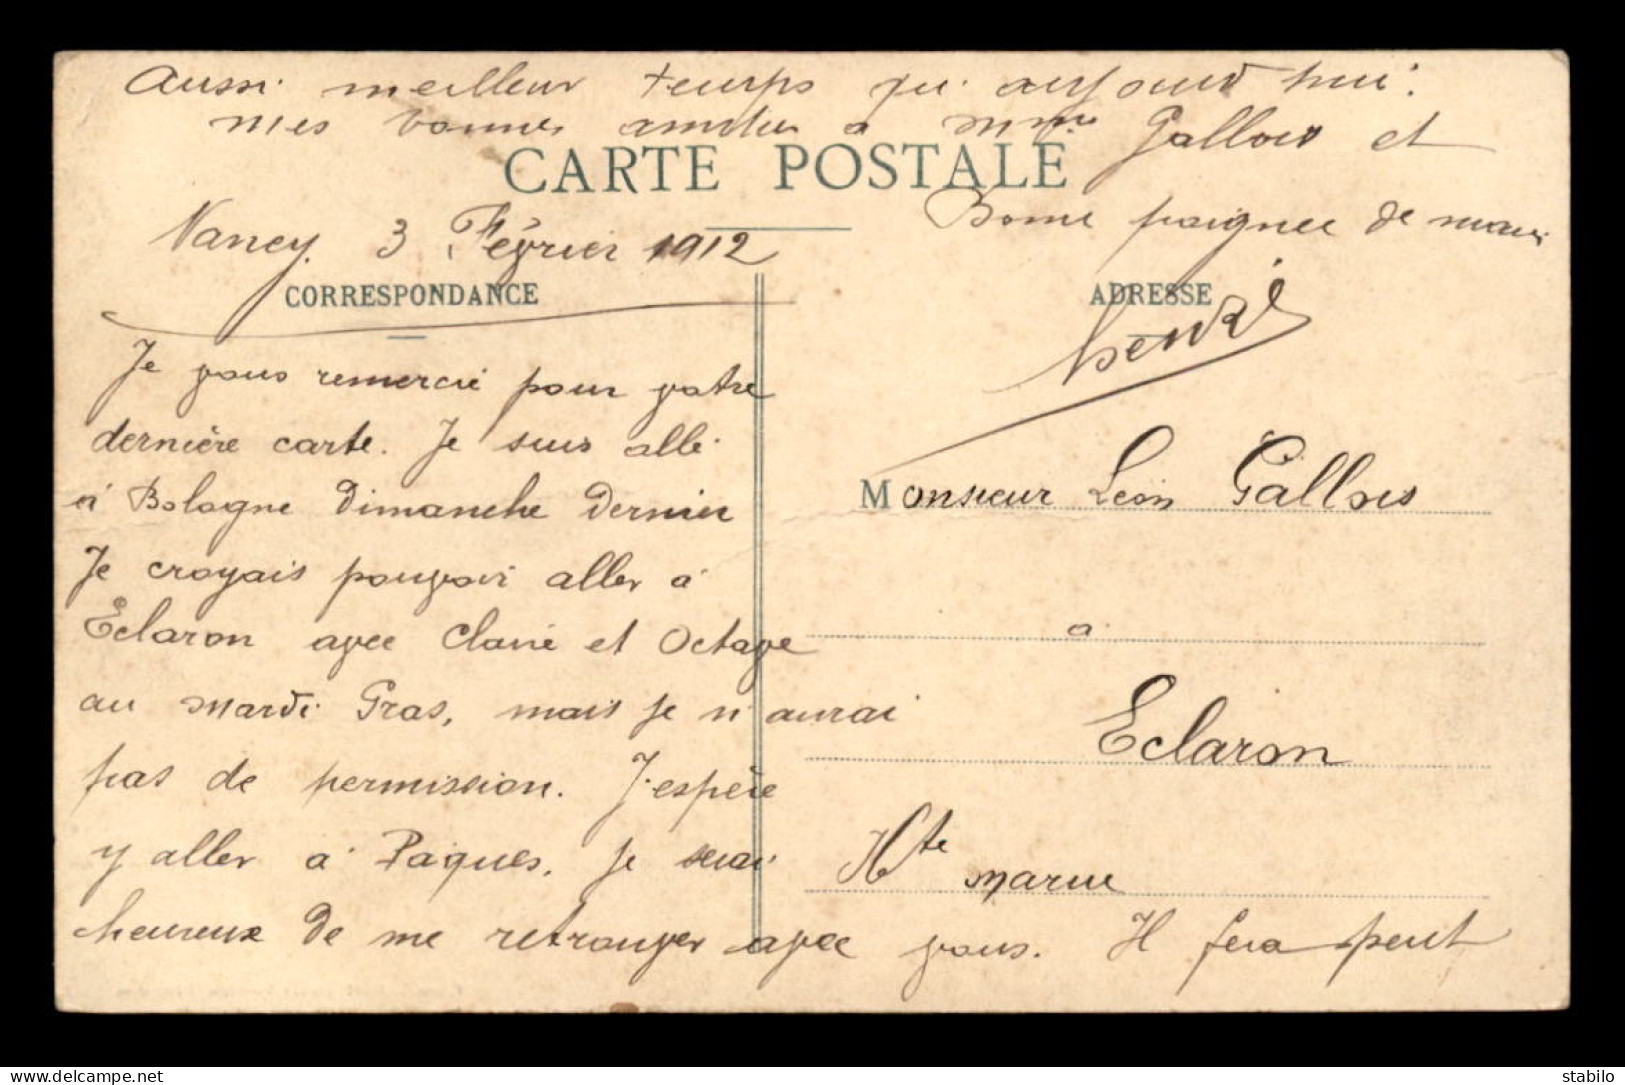 Aussi meilleur temps qu'aujourd'hui.
mes bonnes amitiés à Mme Gallois et
CARTE POSTALE
Bonne poignee de main
Nancy. 3 Février 1912
CORRESPONDANCE
ADRESSE
Henri
Je vous remercie pour votre
dernière carte. Je suis allé
à Bologne Dimanche Dernier
Je croyais pouvoir aller à
Eclaron avec Claire et Octave
au Mardi Gras, mais je n'aurai
pas de permission. J'espère
y aller à Paques. je serai
heureux de me retrouver avec vous. Il fera peut
Monsieur Léon Gallois
à
Eclaron
Hte Marne
delcampe.net
stabilo